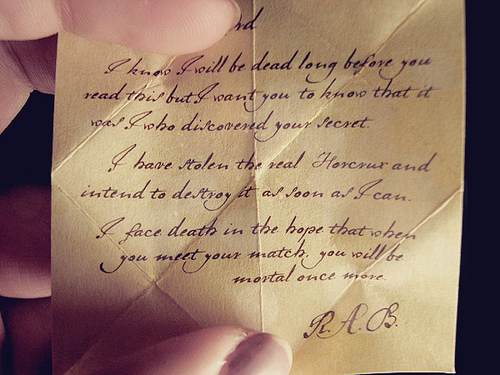 I know I will be dead long before you
read this but I want you to know that it
was I who discovered your secret.
I have stolen the real Horcrux and
intend to destroy it as soon as I can.
I face death in the hope that when
you meet your match, you will be
mortal once more.
R.A.B.